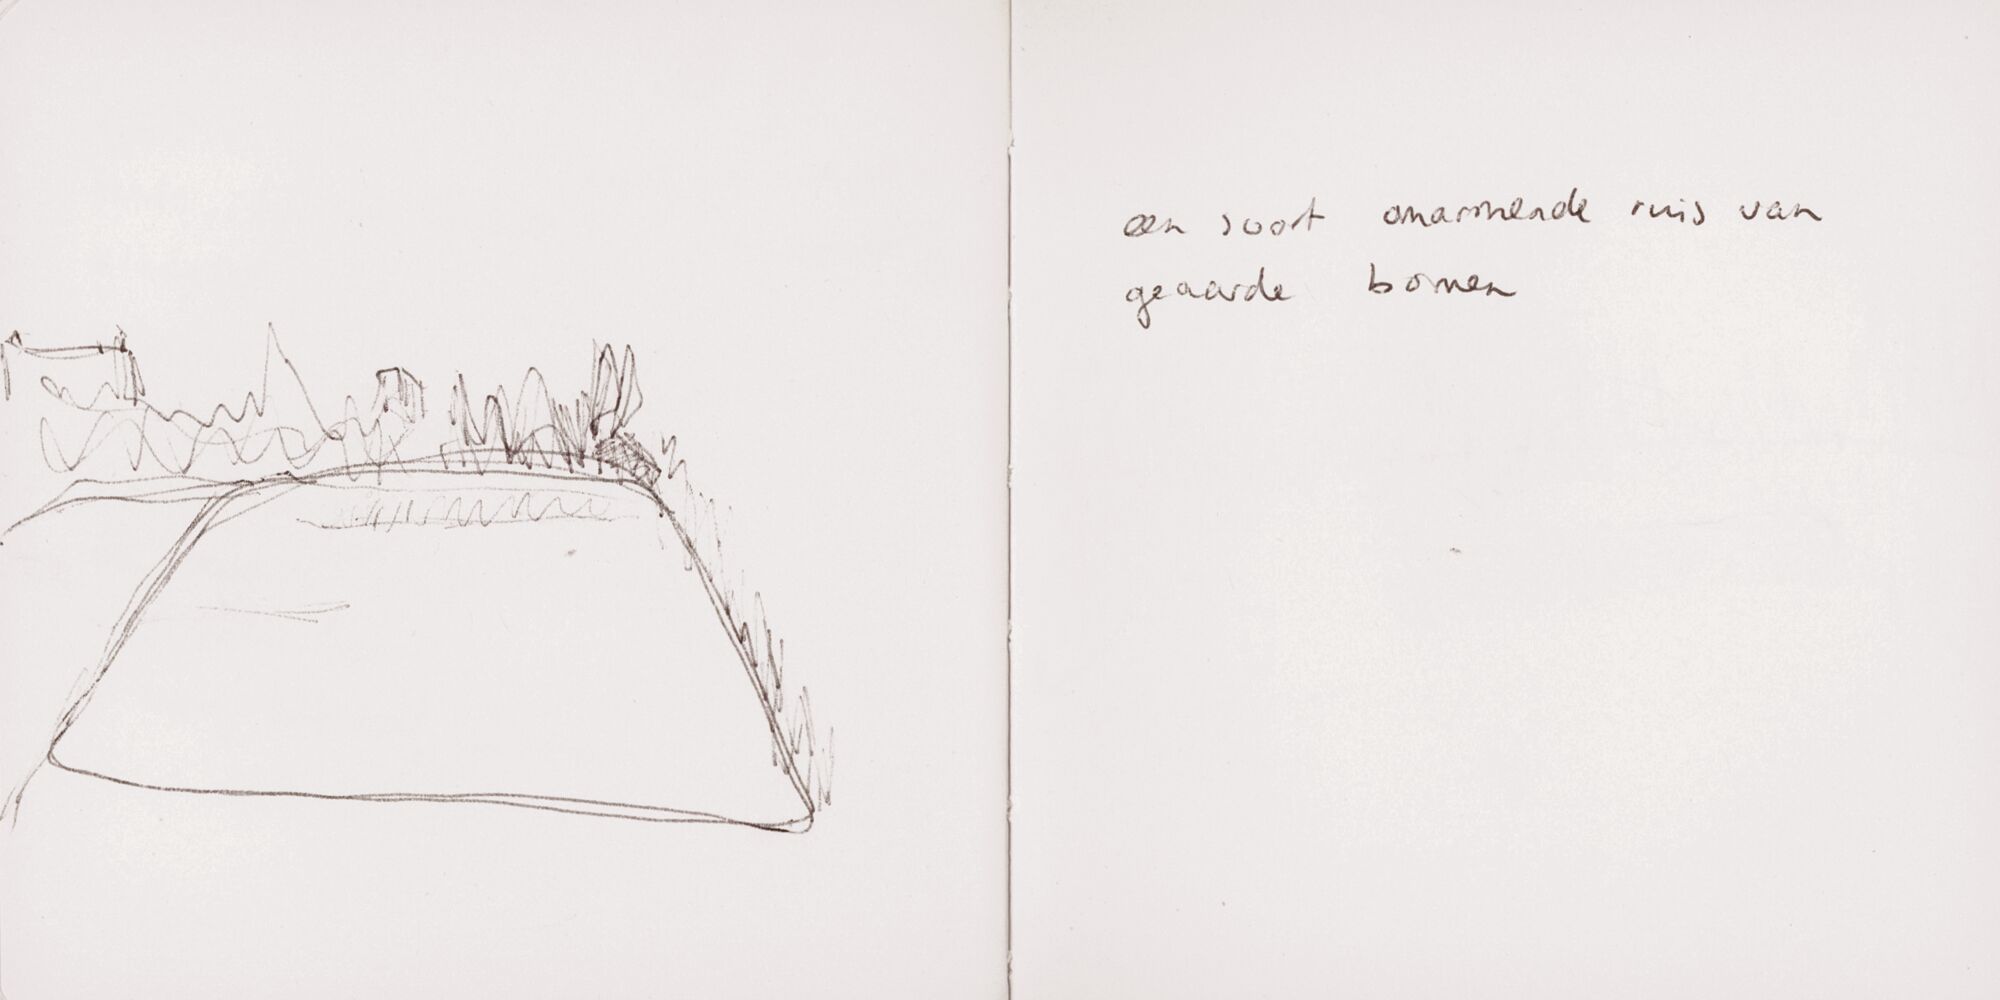 een soort omarmende ruis van
geaarde bomen